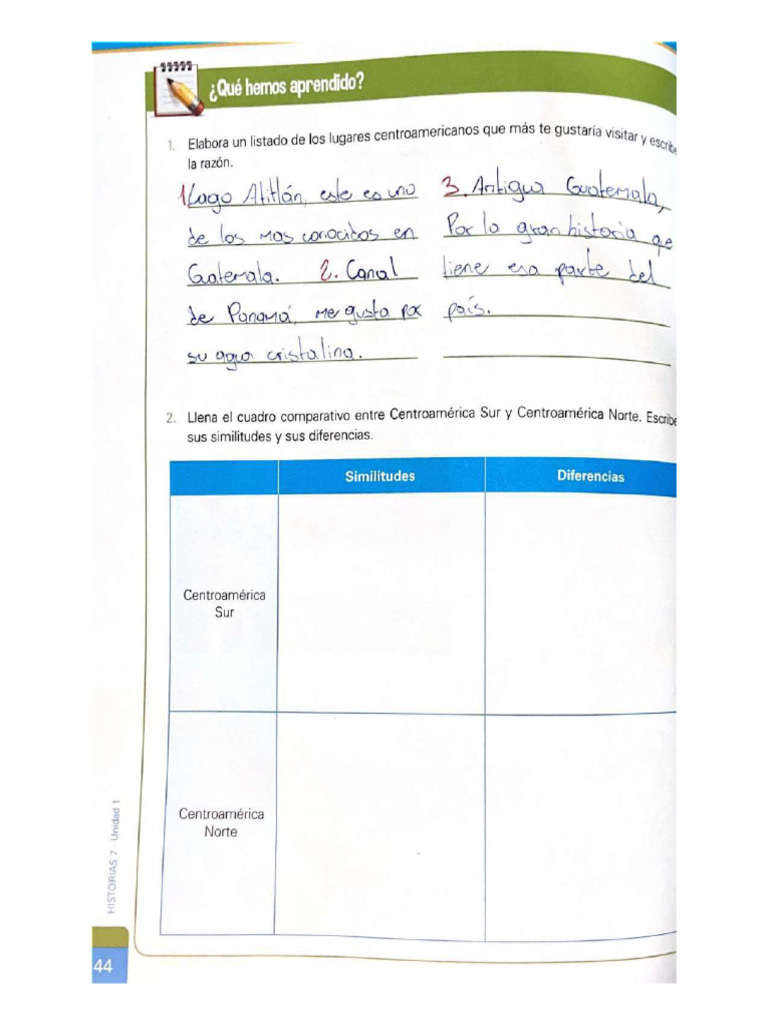 ¿Qué hemos aprendido?
1. Elabora un listado de los lugares centroamericanos que más te gustaría visitar y escribe
la razón.
1. Lago Atitlán, este es uno
de los mas conocidos en
Guatemala. 2. Canal
de Panamá, me gusta por
su agua cristalina.
3. Antigua Guatemala,
Por la gran historia que
tiene esa parte del
país.
2. Llena el cuadro comparativo entre Centroamérica Sur y Centroamérica Norte. Escribe
sus similitudes y sus diferencias.
Similitudes Diferencias
Centroamérica
Sur
Centroamérica
Norte
HISTORIAS 7 - Unidad 1
44